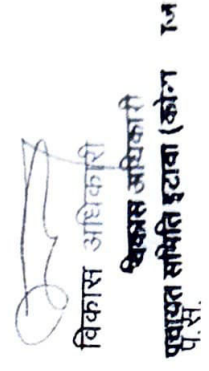 विकास अधिकारी
विकास अधिकारी
पंचायत समिति इटावा (कोटा
प.स.